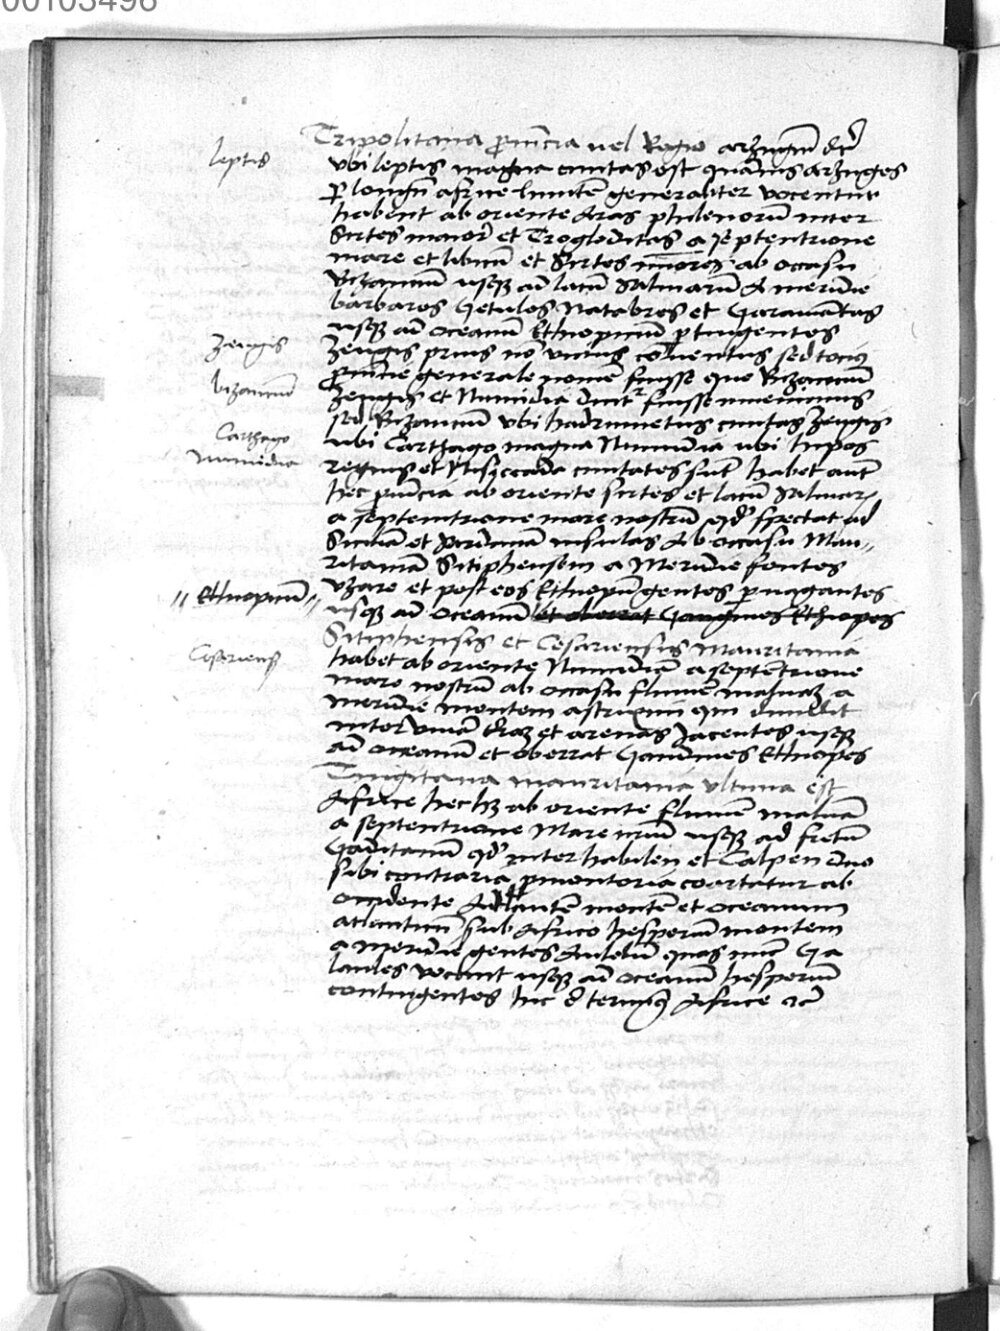 00103496
leptis
Tripolitana ꝓuincia uel Regio arzugū dr̄
vbi leptis magna ciuitas est quāuis arzuges
ꝑ longū africe limitē generaliter vocentur
habent ab oriente Aras philenorū inter
Sirtes maior̄ et Trogloditas a septentrione
mare et libicū et Sirtes minores ab occasu
Bizanciū usqꝫ ad lacū salinarū A meridie
barbaros Getulos Natabres et Garamātas
usqꝫ ad oceanū Ethiopicū ꝑtingentes
Zeugis
Zeugis prius nō vnius cōuentus sed tocius
bizanciū
ꝓuincie generale nomē fuisse que Bizanciū
Zeugis et Numidia dicitʳ fuisse inuenimus
sed Bizanciū vbi hadrumetus ciuitas Zeugis
Carthago
ubi Carthago magna Numidia ubi hipos
Numidia
regius et Rusiccada ciuitates sūt habet autē
hec ꝓuincia ab oriente sirtes et lacū salinar
a septemtrione mare nostrū qd' spectat ad
Siciliā et Sardiniā insulas Ab occasu Mau„
ritaniā Sitiphensem a Meridie fontes
vzare et post eos Ethiopū gentes ꝑuagantes
„ Ethiopicū „
usqꝫ ad oceanū et oberrat Gangines Ethiopes
Sitiphensis et Cesariensis Mauritania
Cesariens
habet ab oriente Numidiā a septētrione
mare nostrū ab occasu flumē maluaꝫ a
meridie montem astrixim qui diuidit
inter viuā terraꝫ et arenas Jacentes usqꝫ
ad oceanū et oberrat Gandines Ethiopes
Tingitana mauritania vltima est
Africe hec hꝫ ab oriente flumē maluā
a septentrione Mare nrūm usqꝫ ad fretū
Gaditanū qd' inter habilen et Calpen duo
sibi contraria ꝓmontoria coartatur ab
occidente Atlantē montē et oceanum
atlanticū sub Africo hesperiū montem
a Meridie gentes Autolū quas nūc Ga
laules vocant usqꝫ ad oceanū hesperiū
contingentes hic ē terminꝰ Africe ⁊c̄